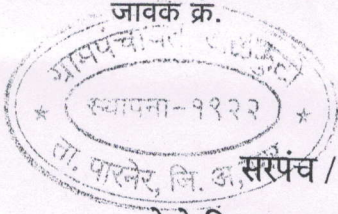 जावक क्र.
ग्रामपंचायत
★ स्थापना-१९२२ ★
ता. पारनेर, जि. अ.
सरपंच /